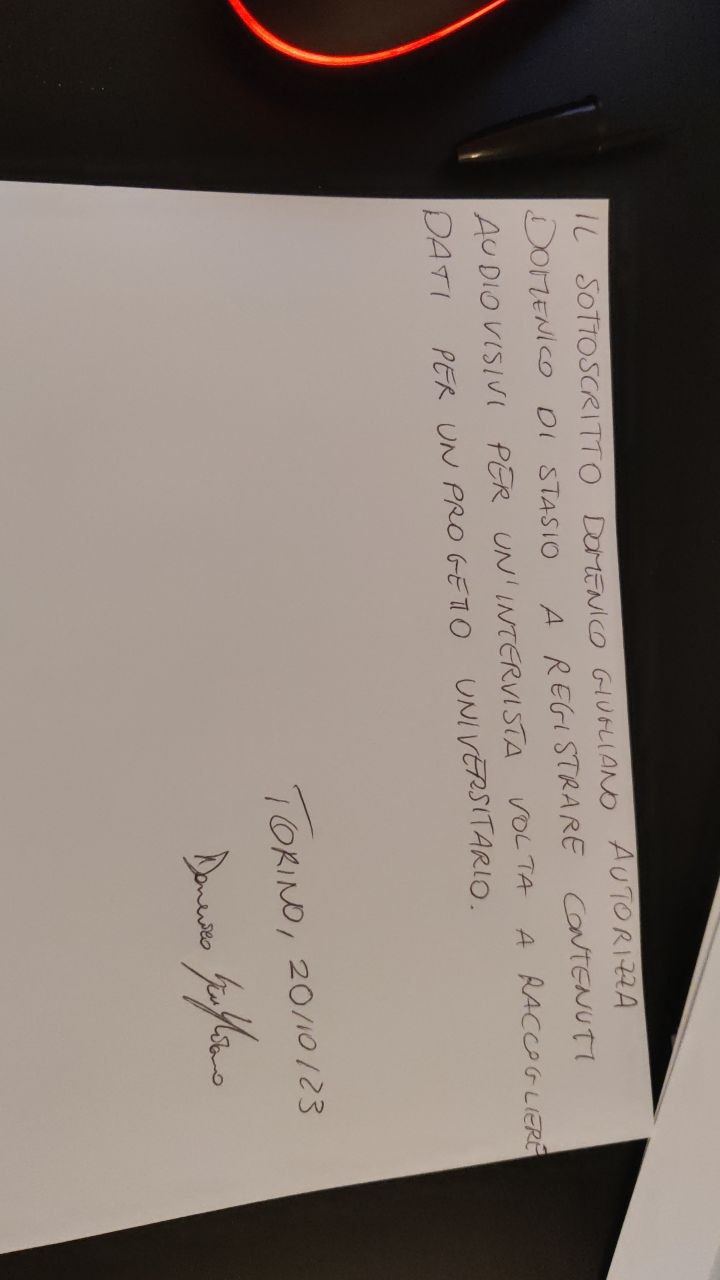 IL SOTTOSCRITTO DOMENICO GIUGLIANO AUTORIZZA
DOMENICO DI STASIO A REGISTRARE CONTENUTI
AUDIOVISIVI PER UN'INTERVISTA VOLTA A RACCOGLIERE
DATI PER UN PROGETTO UNIVERSITARIO.
TORINO, 20/10/23
Domenico Giugliano